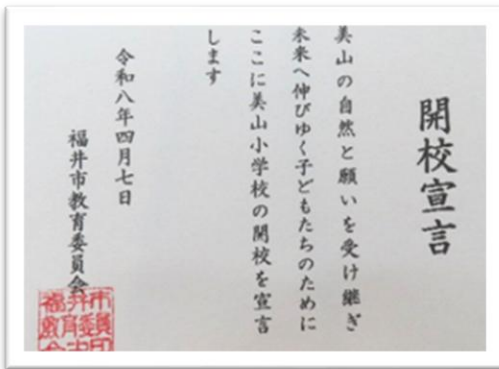 開校宣言
美山の自然と願いを受け継ぎ
未来へ伸びゆく子どもたちのために
ここに美山小学校の開校を宣言
します
令和八年四月七日
福井市教育委員会